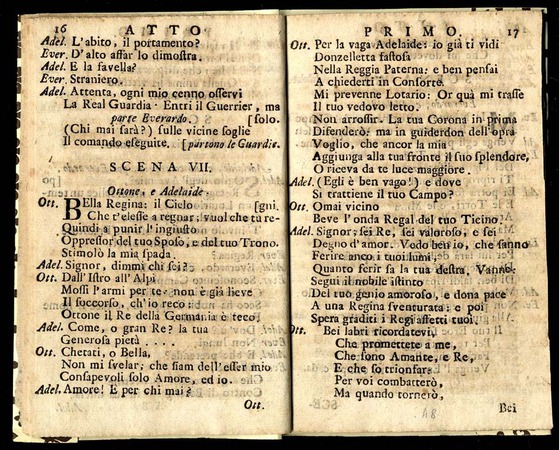 16 ATTO
Adel. L'abito, il portamento?
Ever. D'alto affar lo dimostra.
Adel. E la favella?
Ever. Straniero.
Adel. Attenta, ogni mio cenno osservi
La Real Guardia: Entri il Guerrier, ma
parte Everardo. [solo.
(Chi mai sarà?) sulle vicine soglie
Il comando eseguite. [partono le Guardie.
SCENA VII.
Ottone, e Adelaide.
Ott. BElla Regina: il Cielo [gni.
Che t'elesse a regnar; vuol che tu re-
Quindi a punir l'ingiusto
Oppressor del tuo Sposo, e del tuo Trono.
Stimolò la mia spada.
Adel. Signor, dimmi chi sei?
Ott. Dall'Istro all'Alpi
Mossi l'armi per te: non è già lieve
Il soccorso, ch'io reco:
Ottone il Re della Germania è teco.
Adel. Come, o gran Re? la tua
Generosa pietà . . . .
Ott. Chetati, o Bella,
Non mi svelar; che siam dell'esser mio
Consapevoli solo Amore, ed io.
Adel. Amore! E per chi mai?
Ott.
PRIMO. 17
Ott. Per la vaga Adelaide: io già ti vidi
Donzelletta fastosa
Nella Reggia Paterna: e ben pensai
A chiederti in Consorte.
Mi prevenne Lotario: Or quà mi trasse
Il tuo vedovo letto.
Non arrossir. La tua Corona in prima
Difenderò: ma in guiderdon dell'opra
Voglio, che ancor la mia
Aggiunga alla tua fronte il suo splendore,
O riceva da te luce maggiore.
Adel. (Egli è ben vago!) e dove
Si trattiene il tuo Campo?
Ott. Omai vicino
Beve l'onda Regal del tuo Ticino.
Adel. Signor; sei Re, sei valoroso, e sei
Degno d'amor. Vedo ben io, che sanno
Ferire anco i tuoi lumi,
Quanto ferir sa la tua destra. Vanne:
Segui il nobile istinto
Del tuo genio amoroso, e dona pace
A una Regina sventurata: e poi
Spera graditi i Regi affetti tuoi.
Ott. Bei labri ricordatevi,
Che promettete a me,
Che sono Amante, e Re,
E che so trionfar:
Per voi combatterò,
Ma quando tornerò,
Bei